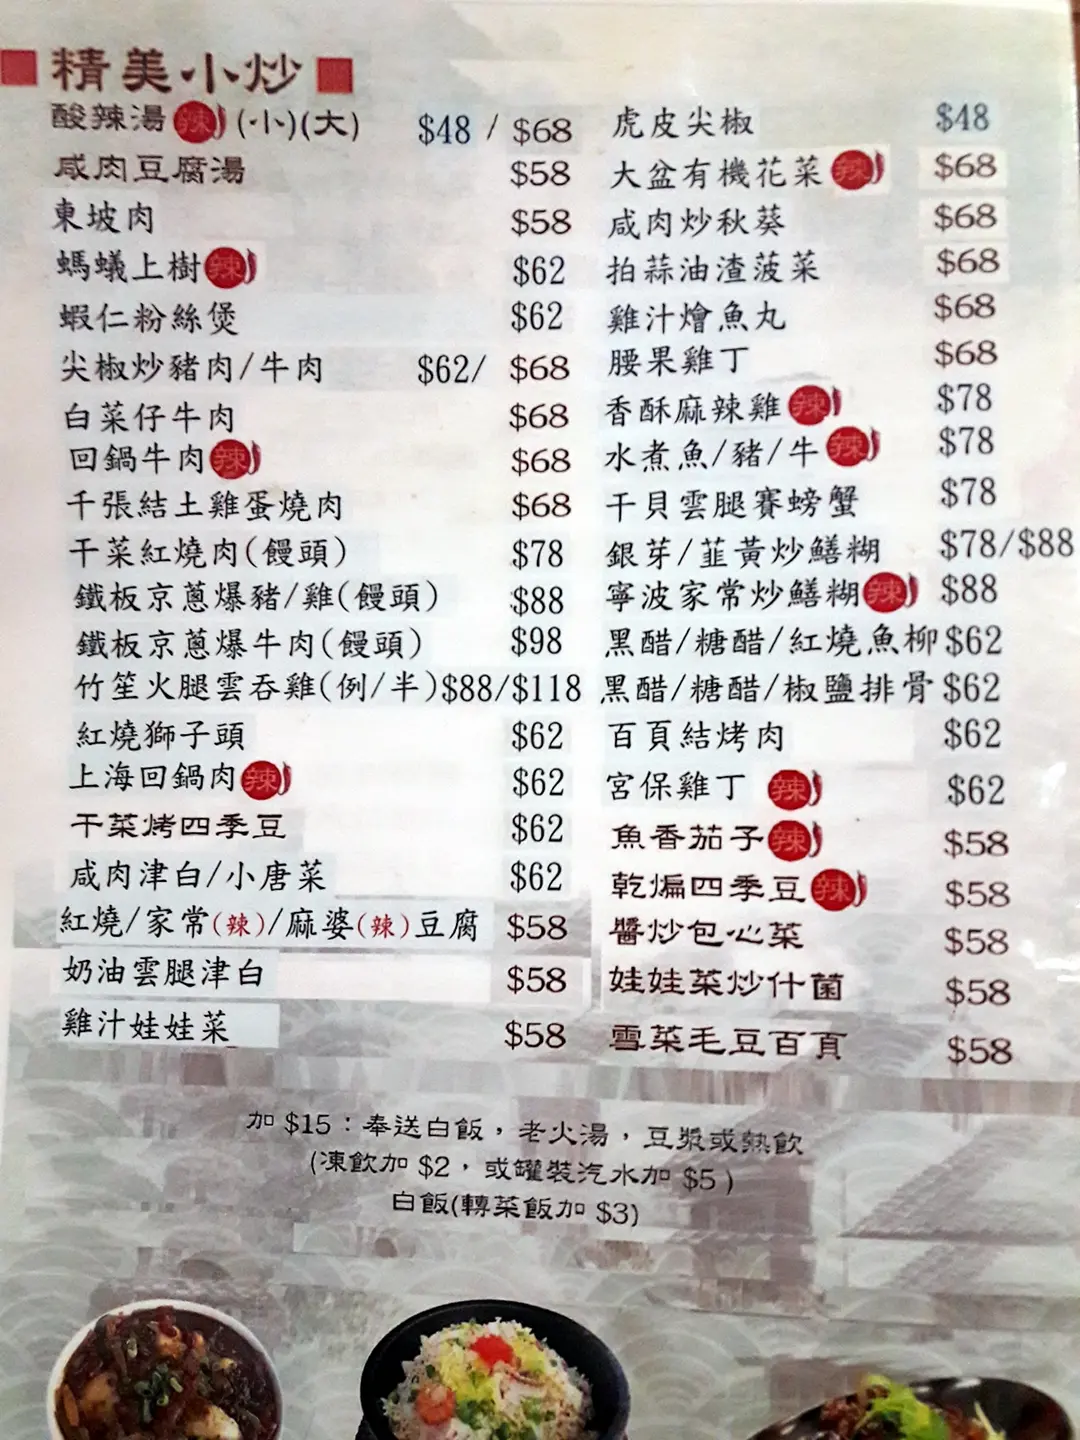 精美小炒
酸辣湯 辣 (小)(大) $48 / $68
咸肉豆腐湯 $58
東坡肉 $58
螞蟻上樹 辣 $62
蝦仁粉絲煲 $62
尖椒炒豬肉/牛肉 $62/ $68
白菜仔牛肉 $68
回鍋牛肉 辣 $68
千張結土雞蛋燒肉 $68
干菜紅燒肉(饅頭) $78
鐵板京蔥爆豬/雞(饅頭) $88
鐵板京蔥爆牛肉(饅頭) $98
竹笙火腿雲吞雞(例/半) $88/$118
紅燒獅子頭 $62
上海回鍋肉 辣 $62
干菜烤四季豆 $62
咸肉津白/小唐菜 $62
紅燒/家常(辣)/麻婆(辣)豆腐 $58
奶油雲腿津白 $58
雞汁娃娃菜 $58
虎皮尖椒 $48
大盆有機花菜 辣 $68
咸肉炒秋葵 $68
拍蒜油渣菠菜 $68
雞汁燴魚丸 $68
腰果雞丁 $68
香酥麻辣雞 辣 $78
水煮魚/豬/牛 辣 $78
干貝雲腿賽螃蟹 $78
銀芽/韮黃炒鱔糊 $78/$88
寧波家常炒鱔糊 辣 $88
黑醋/糖醋/紅燒魚柳 $62
黑醋/糖醋/椒鹽排骨 $62
百頁結烤肉 $62
宮保雞丁 辣 $62
魚香茄子 辣 $58
乾煸四季豆 辣 $58
醬炒包心菜 $58
娃娃菜炒什菌 $58
雪菜毛豆百頁 $58
加 $15：奉送白飯，老火湯，豆漿或熱飲
(凍飲加 $2，或罐裝汽水加 $5)
白飯(轉菜飯加 $3)